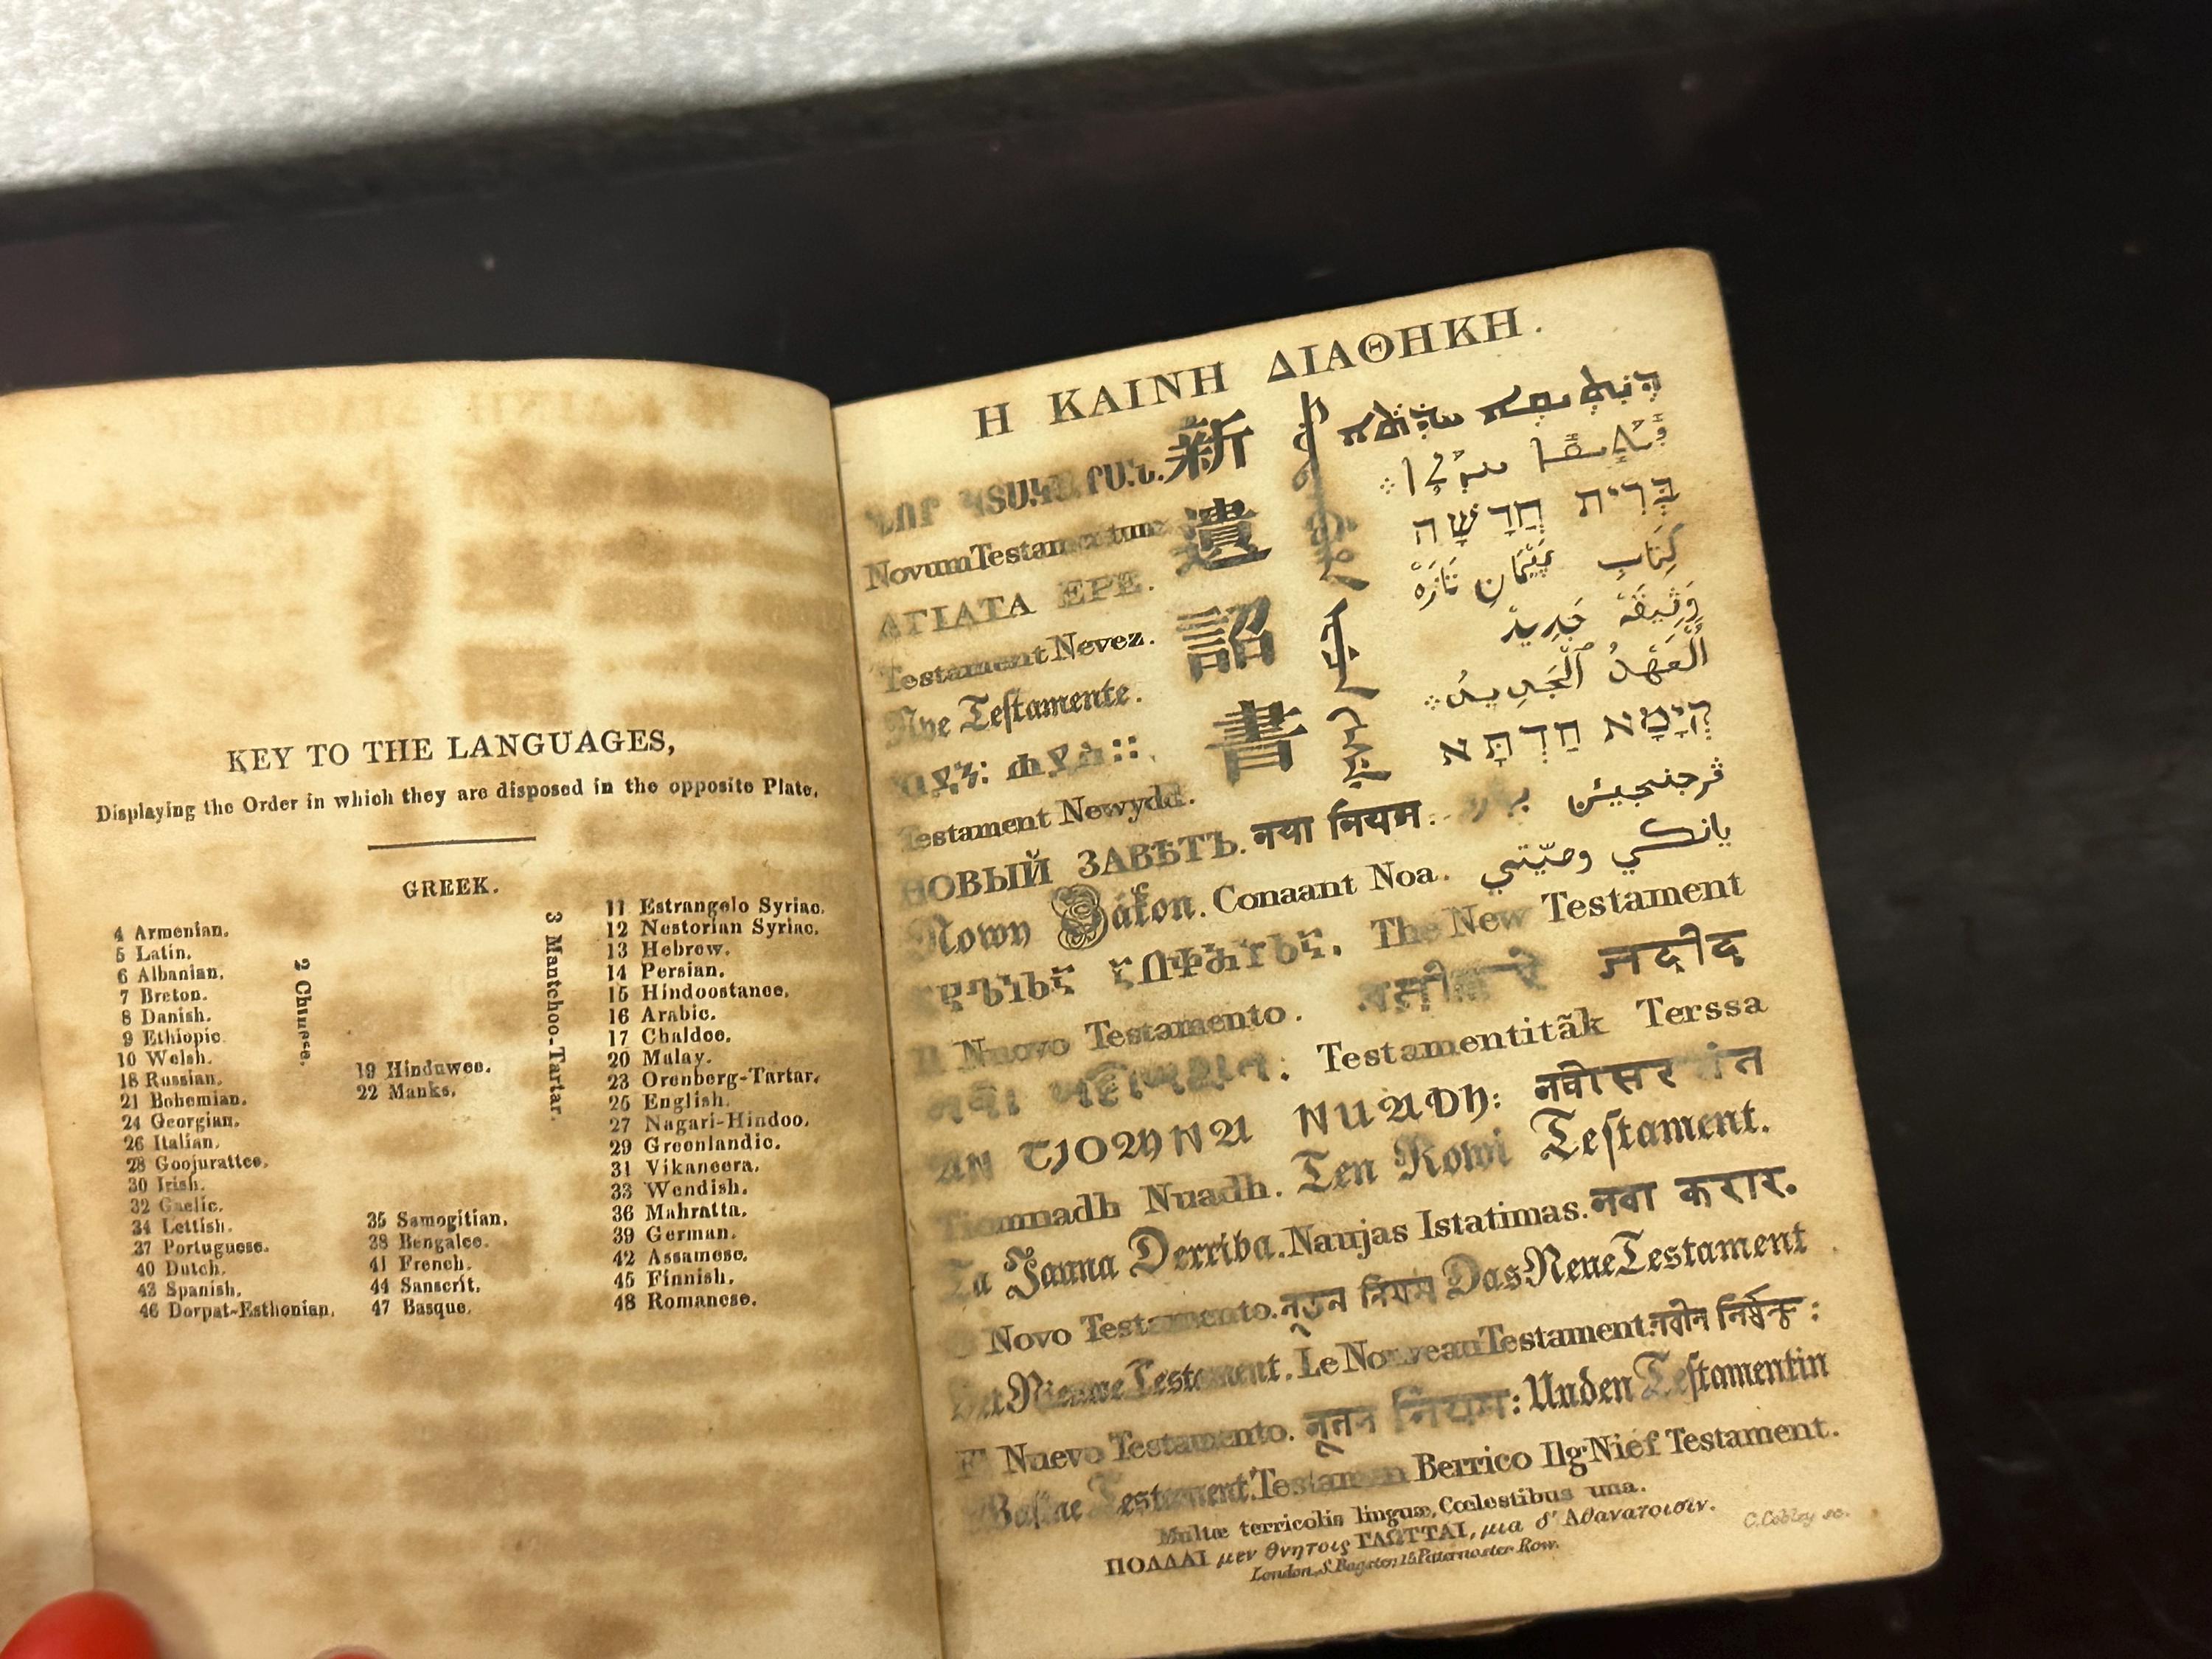 KEY TO THE LANGUAGES,
Displaying the Order in which they are disposed in the opposite Plate.
GREEK.
4 Armenian.
5 Latin.
6 Albanian.
7 Breton.
8 Danish.
9 Ethiopic
10 Welsh.
18 Russian.
21 Bohemian.
24 Georgian.
26 Italian.
28 Goojurattee.
30 Irish.
32 Gaelic.
34 Lettish.
37 Portuguese.
40 Dutch.
43 Spanish.
46 Dorpat-Esthonian.
2 Chinese.
19 Hinduwee.
22 Manks.
35 Samogitian.
38 Bengalee.
41 French.
44 Sanscrit.
47 Basque.
3 Mantchoo-Tartar.
11 Estrangelo Syriac.
12 Nestorian Syriac.
13 Hebrew.
14 Persian.
15 Hindoostanee.
16 Arabic.
17 Chaldee.
20 Malay.
23 Orenberg-Tartar.
25 English.
27 Nagari-Hindoo.
29 Greenlandic.
31 Vikaneera.
33 Wendish.
36 Mahratta.
39 German.
42 Assamese.
45 Finnish.
48 Romanese.
Η ΚΑΙΝΗ ΔΙΑΘΗΚΗ.
新遺詔書
Novum Testamentum
ΔΤΙΑΤΑ ΕΡΕ.
Testament Nevez.
Nye Testamente.
Testament Newydd.
בְּרִית חֲדָשָׁה
كِتَابِ پَيْمَانِ تَازَهْ
وَثِيقَهْ جَدِيدْ
اَلْعَهْدُ ٱلْجَدِيدُ
קְיָמָא חַדְתָּא
НОВЫЙ ЗАВѢТЪ. नया नियम.
Nowy Zákon. Conaant Noa. يانڬي وصيّتي
The New Testament
Il Nuovo Testamento. जदीद
Testamentitãk Terssa
Tiomnadh Nuadh. Ten Nowi Testament.
Ta Jauna Derriba. Naujas Istatimas. नवा करार.
O Novo Testamento. নূতন নিয়ম Das Neue Testament
Het Nieuwe Testament. Le Nouveau Testament.
El Nuevo Testamento. नूतन नियम: Uuden Testamentin
Testament. Testamen Berrico Ilg Nief Testament.
Multæ terricolis linguæ, Cœlestibus una.
ΠΟΛΛΑΙ μεν θνητοις ΓΛΩΤΤΑΙ, μια δ' Αθανατοισιν.
London, S. Bagster, 15 Paternoster Row.
C. Cobley sc.